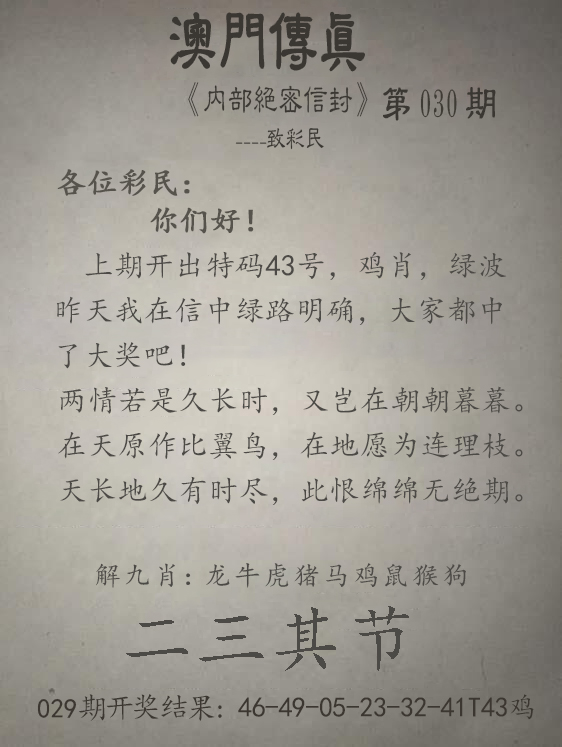 澳門傳眞
《内部絕密信封》第030期
----致彩民
各位彩民：
你们好！
上期开出特码43号，鸡肖，绿波
昨天我在信中绿路明确，大家都中
了大奖吧！
两情若是久长时，又岂在朝朝暮暮。
在天原作比翼鸟，在地愿为连理枝。
天长地久有时尽，此恨绵绵无绝期。
解九肖：龙牛虎猪马鸡鼠猴狗
二三其节
029期开奖结果：46-49-05-23-32-41T43鸡